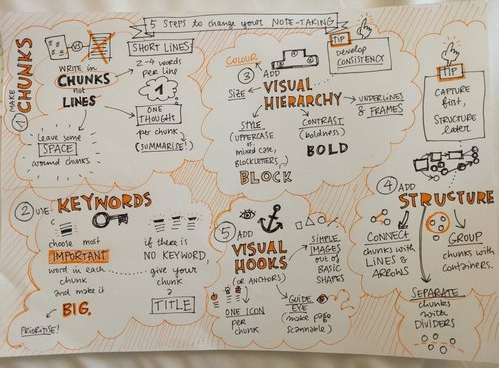 5 STEPS to change your NOTE-TAKING
① MAKE CHUNKS
VS
WRITE IN
CHUNKS
not
LINES
SHORT LINES
2-4 words
per line
1
ONE
THOUGHT
per chunk
(SUMMARISE!)
Leave some
SPACE
around chunks
② USE KEYWORDS
choose most
IMPORTANT
word in each
chunk
and make it
BIG.
PRIORITISE!
if there is
NO KEYWORD,
give your
chunk
a
TITLE
③ ADD
VISUAL
HIERARCHY
COLOUR
SIZE
2
1
3
TIP
develop
CONSISTENCY
UNDERLINES
& FRAMES
STYLE
(UPPERCASE
vs
mixed case,
BLOCKLETTERS)
BLOCK
CONTRAST
(boldness)
BOLD
TIP
CAPTURE
first,
STRUCTURE
later
④ ADD
STRUCTURE
CONNECT
chunks with
LINES &
ARROWS
GROUP
chunks with
containers.
SEPARATE
chunks
with
DIVIDERS
⑤ ADD
VISUAL
HOOKS
(OR ANCHORS)
SIMPLE
IMAGES
out of
BASIC
SHAPES
ONE ICON
per
chunk
GUIDE
EYE
(make page
scannable)